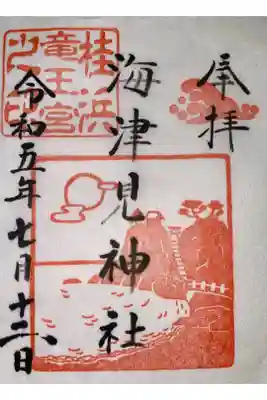 奉拝
海津見神社
令和五年七月十日
桂浜
竜王宮